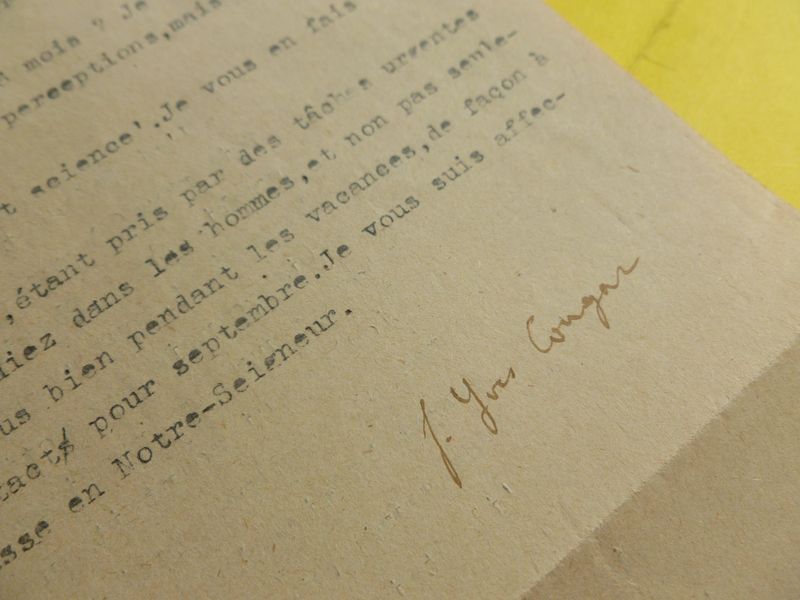 mois ? Je
perceptions,mais
t science'.Je vous en fais
,étant pris par des tâches urgentes
iez dans les hommes,et non pas seule-
us bien pendant les vacances,de façon à
tacts pour septembre.Je vous suis affec-
sse en Notre-Seigneur.
f. Yves Congar